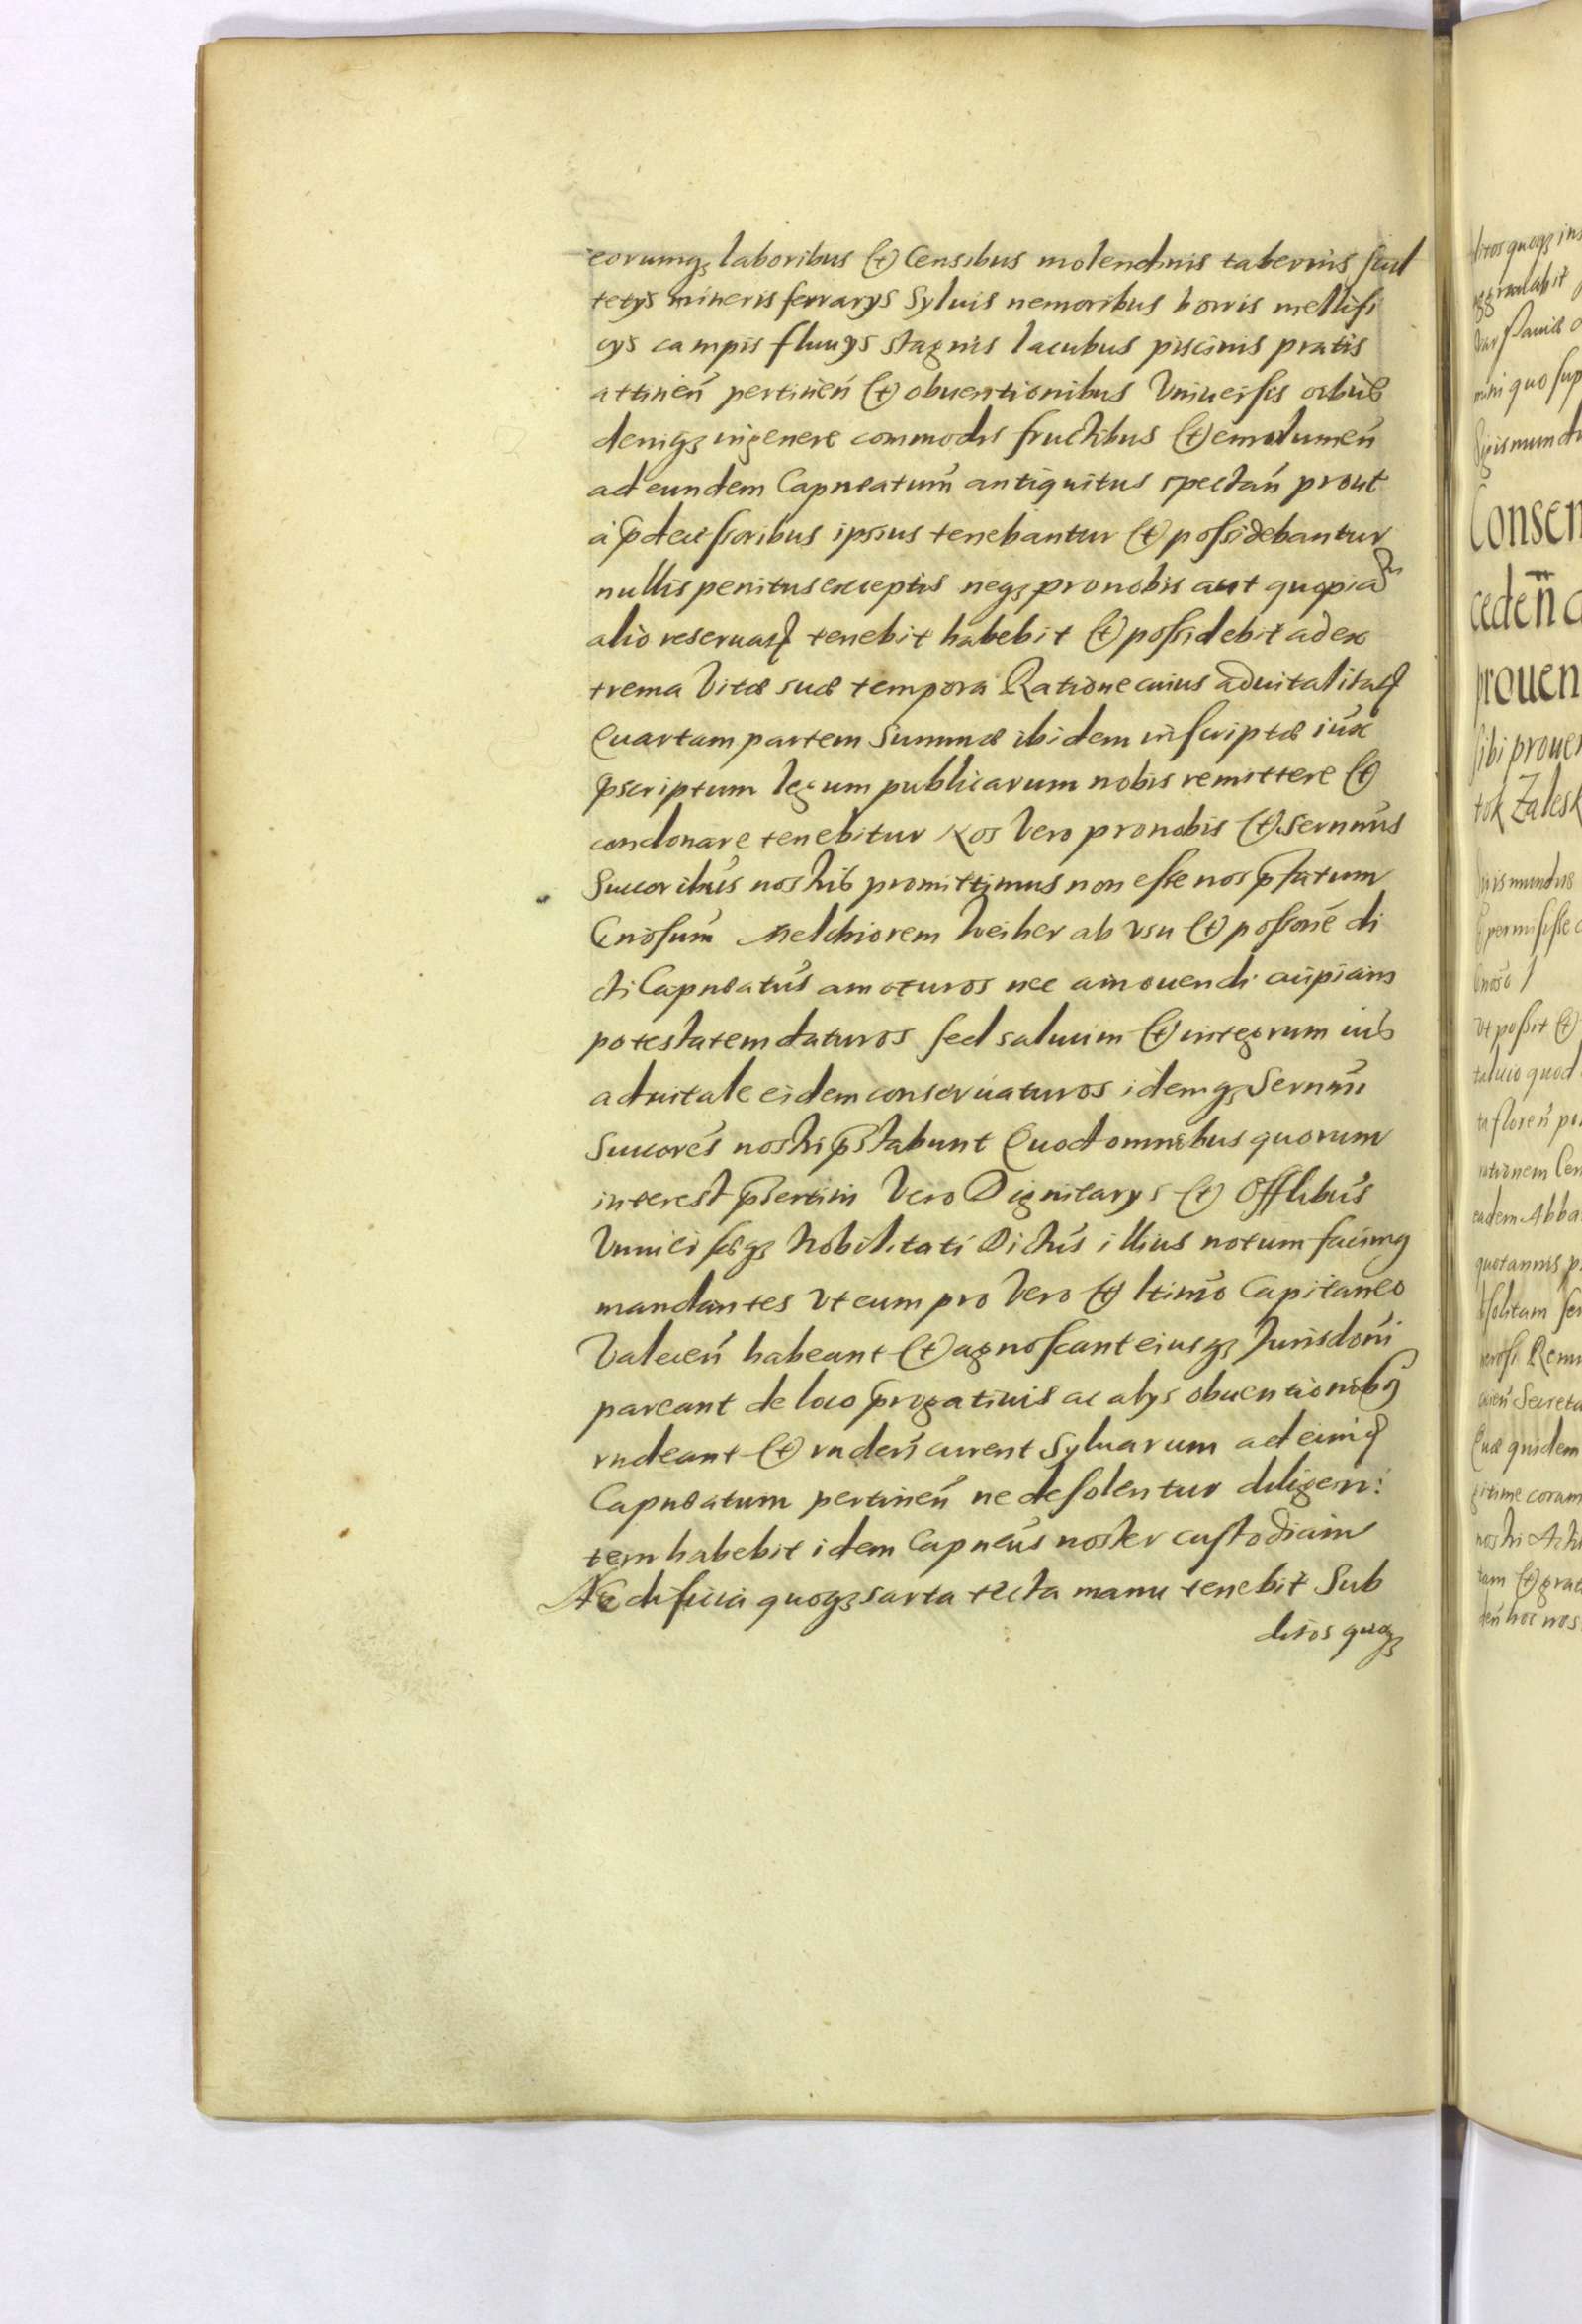 eorumqꝫ laboribus et Censibus molendinis tabernis scul
tetys mineris ferrarys Syluis nemoribus borris mellifi
cys campis fluuys stagnis lacubus piscinis pratis
attineñ pertineñ et obuentionibus Vniuersis oibus
deniqꝫ ingenere commodis fructibus et emolumeñ
ad eundem Capneatum̄ antiquitus spectañ prout
à p̄decessoribus ipsius tenebantur et possidebantur
nullis penitus exceptis neqꝫ pro nobis aut quopiam
alio reseruatꝭ tenebit habebit et possidebit ad ex
trema Vitæ suæ tempora Ratione cuius aduitalitatꝭ
Quartam partem Summæ ibidem inscriptæ iux̄
p̄scriptum legum publicarum nobis remittere et
condonare tenebitur Nos Vero pro nobis et Serenniis
Succoribus nostris promittimus non esse nos p̄fatum
Gn̄osum Melchiorem Weiher ab vsu et possone di
cti Capneatus amoturos nec amouendi cuipiam
potestatem daturos sed saluum et integrum ius
aduitale eidem conseruaturos idemqꝫ Serenni
Succores nostri p̄stabunt Quod omnibus quorum
interest p̄sertim Vero Dignitarys et Offlibus
Vniuersæqꝫ Nobilitati Dictus illius notum facimꝰ
mandantes Vt eum pro Vero et ltimo Capitaneo
Valeceñ habeant et agnoscant eiusqꝫ Jurisdoni
pareant de loco p̄rogatiuis ac alys obuentionibꝰ
rndeant et rnderi curent Syluarum ad eundꝭ
Capneatum pertineñ ne desolentur diligen:
tem habebit idem Capneus noster custodiam
Ædificia quoqꝫ sarta tecta manu tenebit Sub
ditos quoqꝫ
ditos quoqꝫ ins
Consen
cedeñ
prouen
sibi prouen
tok Zalesk
Vt possit et
taluio quod
eadem Abba
quotannis p
Quæ quidem
gitime coram